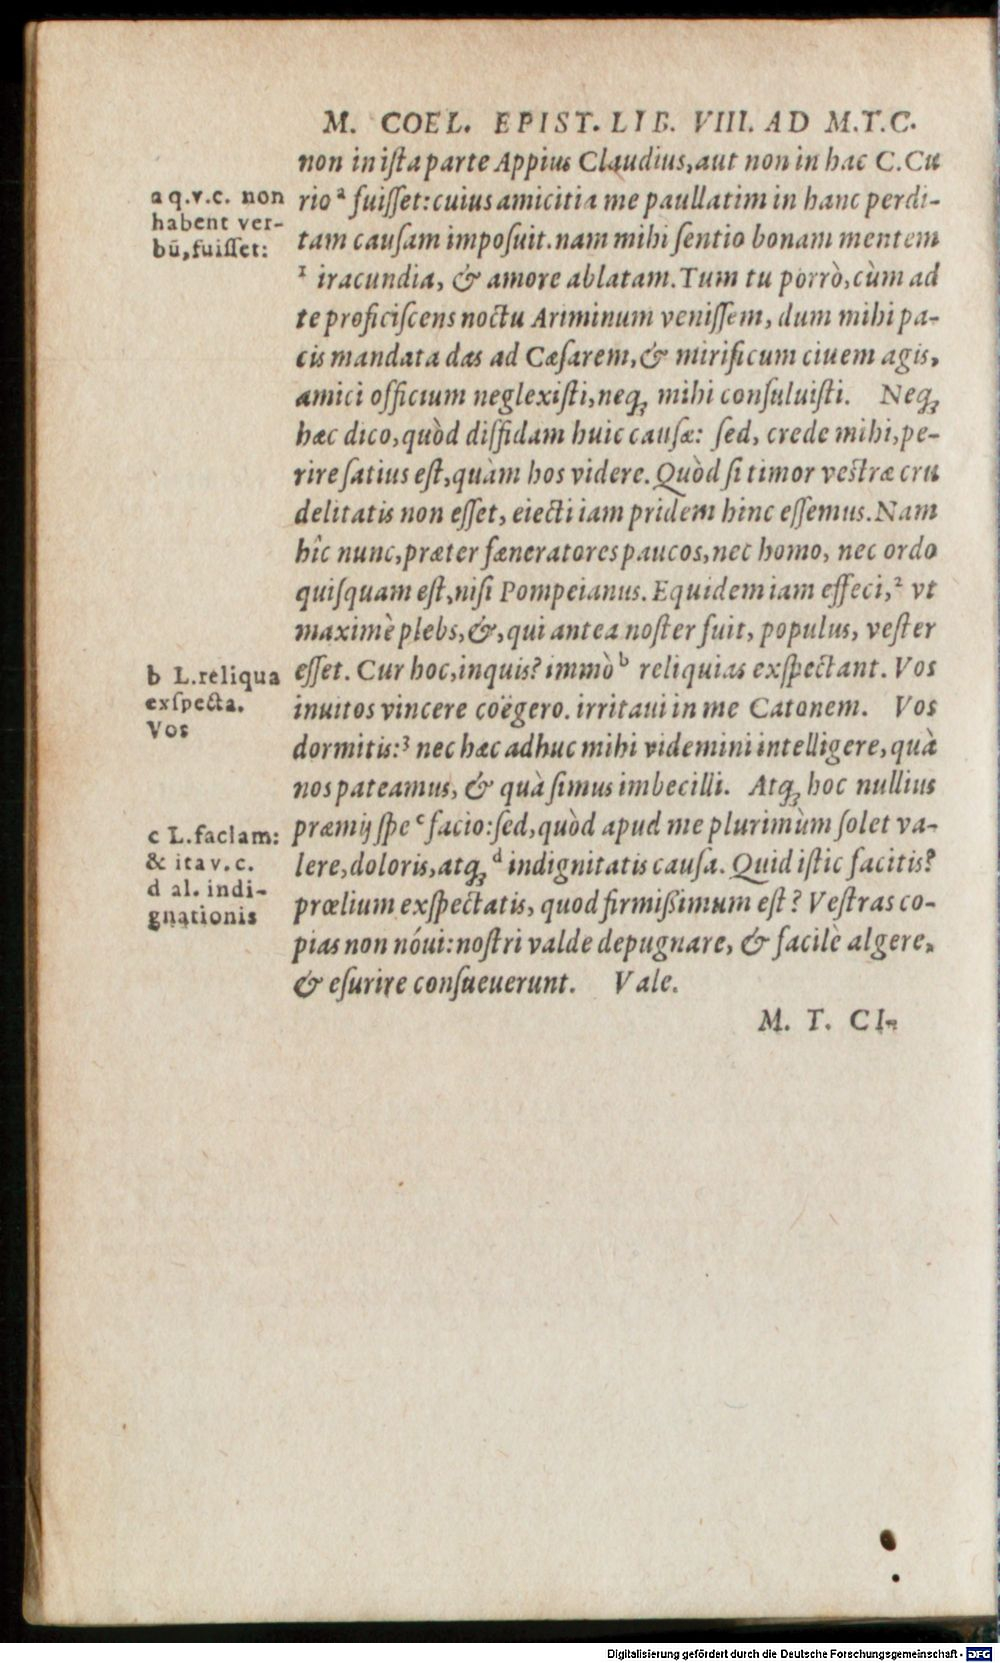 M. COEL. EPIST. LIB. VIII. AD M.T.C.
non in iſta parte Appius Claudius, aut non in hac C. Cu
rio ᵃ fuiſſet: cuius amicitia me paullatim in hanc perdi-
tam cauſam impoſuit. nam mihi ſentio bonam mentem
¹ iracundia, & amore ablatam. Tum tu porrò, cùm ad
te proficiſcens noctu Ariminum veniſſem, dum mihi pa-
cis mandata das ad Cæſarem, & mirificum ciuem agis,
amici officium neglexiſti, neq; mihi conſuluiſti. Neq;
hæc dico, quòd diffidam huic cauſæ: ſed, crede mihi, pe-
rire ſatius eſt, quàm hos videre. Quòd ſi timor veſtræ cru
delitatis non eſſet, eiecti iam pridem hinc eſſemus. Nam
hîc nunc, præter fæneratores paucos, nec homo, nec ordo
quiſquam eſt, niſi Pompeianus. Equidem iam effeci, ² vt
maximè plebs, &, qui antea noſter fuit, populus, veſter
eſſet. Cur hoc, inquis? immò ᵇ reliquias exſpectant. Vos
inuitos vincere coëgero. irritaui in me Catonem. Vos
dormitis: ³ nec hæc adhuc mihi videmini intelligere, quà
nos pateamus, & quà ſimus imbecilli. Atq; hoc nullius
præmij ſpe ᶜ facio: ſed, quòd apud me plurimùm ſolet va-
lere, doloris, atq; ᵈ indignitatis cauſa. Quid iſtic facitis?
prœlium exſpectatis, quod firmiſſimum eſt? Veſtras co-
pias non nóui: noſtri valde depugnare, & facilè algere,
& eſurire conſueuerunt. Vale.
M. T. CI-
a q.v.c. non
habent ver-
bũ, fuiſſet:
b L. reliqua
exſpecta.
Vos
c L. faciam:
& ita v. c.
d al. indi-
gnationis
Digitalisierung gefördert durch die Deutsche Forschungsgemeinschaft - DFG